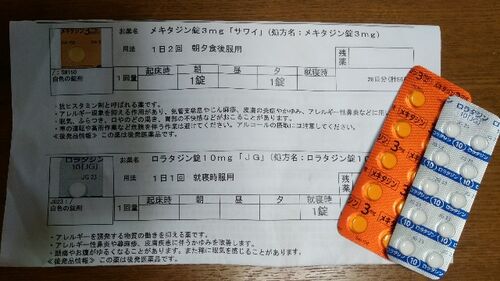 お薬名 メキタジン錠3mg「サワイ」(処方名:メキタジン錠3mg)
用法 1日2回 朝夕食後服用
残薬
メキタジン
3mg
起床時 朝 昼 夕 就寝時
1回量 1錠 1錠
28日分
白色の錠剤
・抗ヒスタミン剤と呼ばれる薬です。
・アレルギー現象を抑える作用があり、気管支喘息やじん麻疹、皮膚の炎症やかゆみ、アレルギー性鼻炎などに用
・眠気、ふらつき、口やのどの渇き、胃部の不快感などがおこることがあります。
・車の運転や高所作業など危険を伴う作業は避けてください。アルコールの摂取には注意してください。
≪後発品情報≫ この薬は後発医薬品です。
お薬名 ロラタジン錠10mg「JG」(処方名:ロラタジン錠1
用法 1日1回 就寝時服用
残薬
ロラタジン
10[JG]
JG 23
起床時 朝 昼 夕 就寝時
1回量 1錠
JG23:
白色の錠剤
・アレルギーを誘発する物質の働きを抑える薬です。
・アレルギー性鼻炎や蕁麻疹、皮膚疾患に伴うかゆみを改善します。
・頭痛やお腹がゆるくなることがあります。また稀に眠気を感じることがあります。
≪後発品情報≫ この薬は後発医薬品です。
3mg
メキタジン
3mg
メキタジン
3mg
ロラタジン
10
JG 23
ロラタジン
10
JG 23
ロラタジン
10